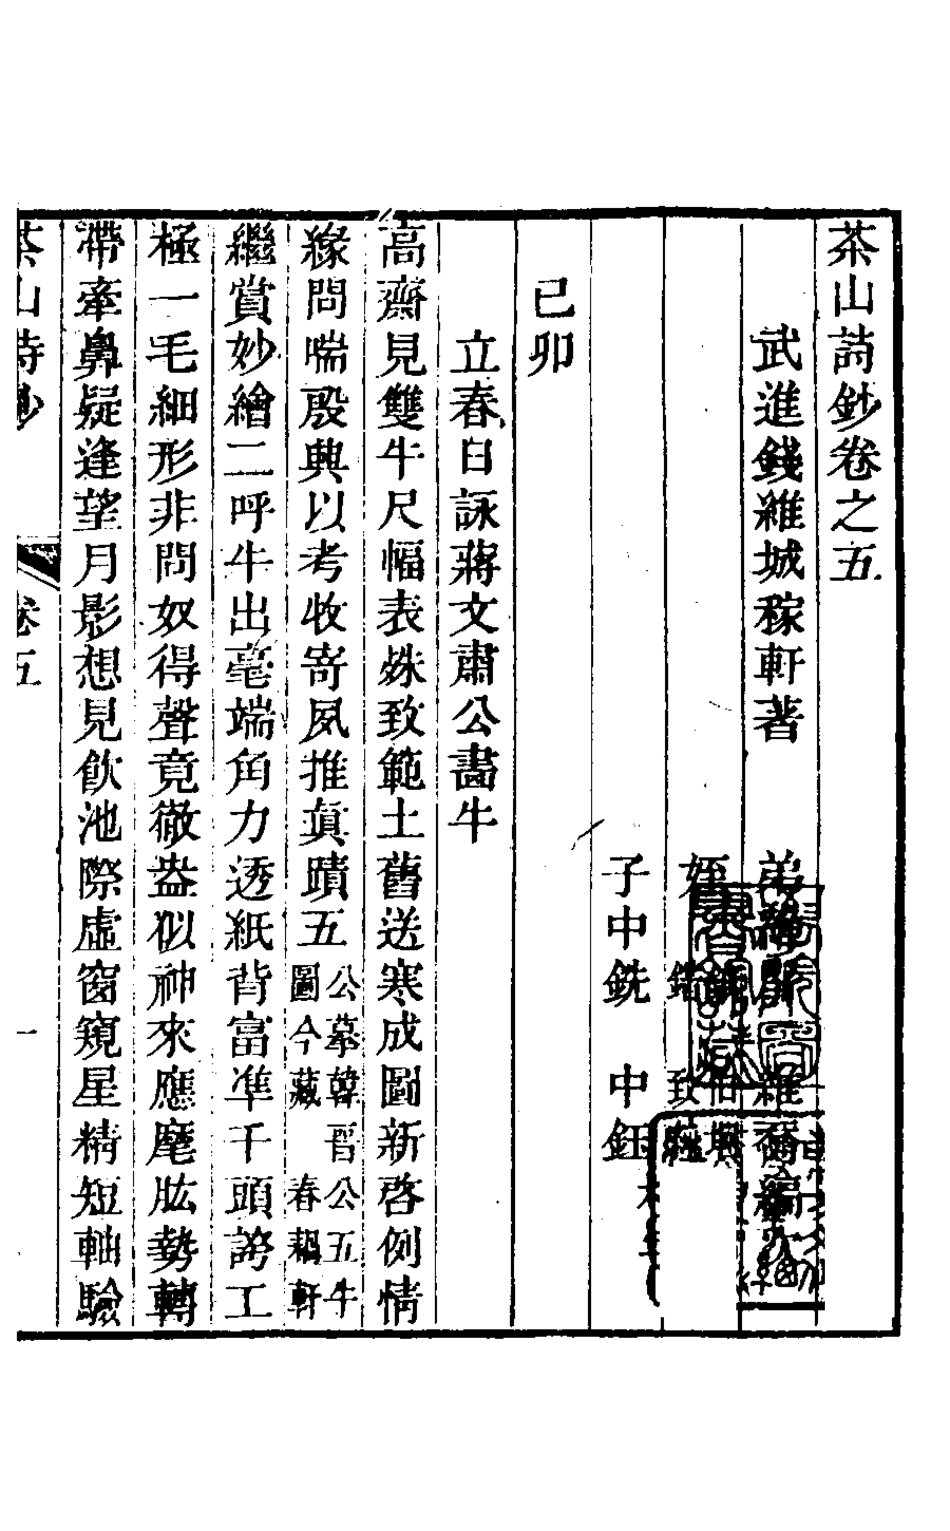 茶山詩鈔卷之五
武進錢維城稼軒著
弟維
姪
子中銑 中鈺
己卯
立春日詠蔣文肅公畫牛
高齋見雙牛尺幅表姝致範土舊送寒成圖新啓例情
緣問喘殷典以考收寄夙推眞蹟五公摹韓晉公五牛圖今藏春耦軒
繼賞妙繪二呼牛出毫端角力透紙背富準千頭誇工
極一毛細形非問奴得聲竟徹盎似神來應麾肱勢轉
帶牽鼻疑逢望月影想見飮池際虛窗窺星精短軸驗
茶山詩鈔 卷五 一